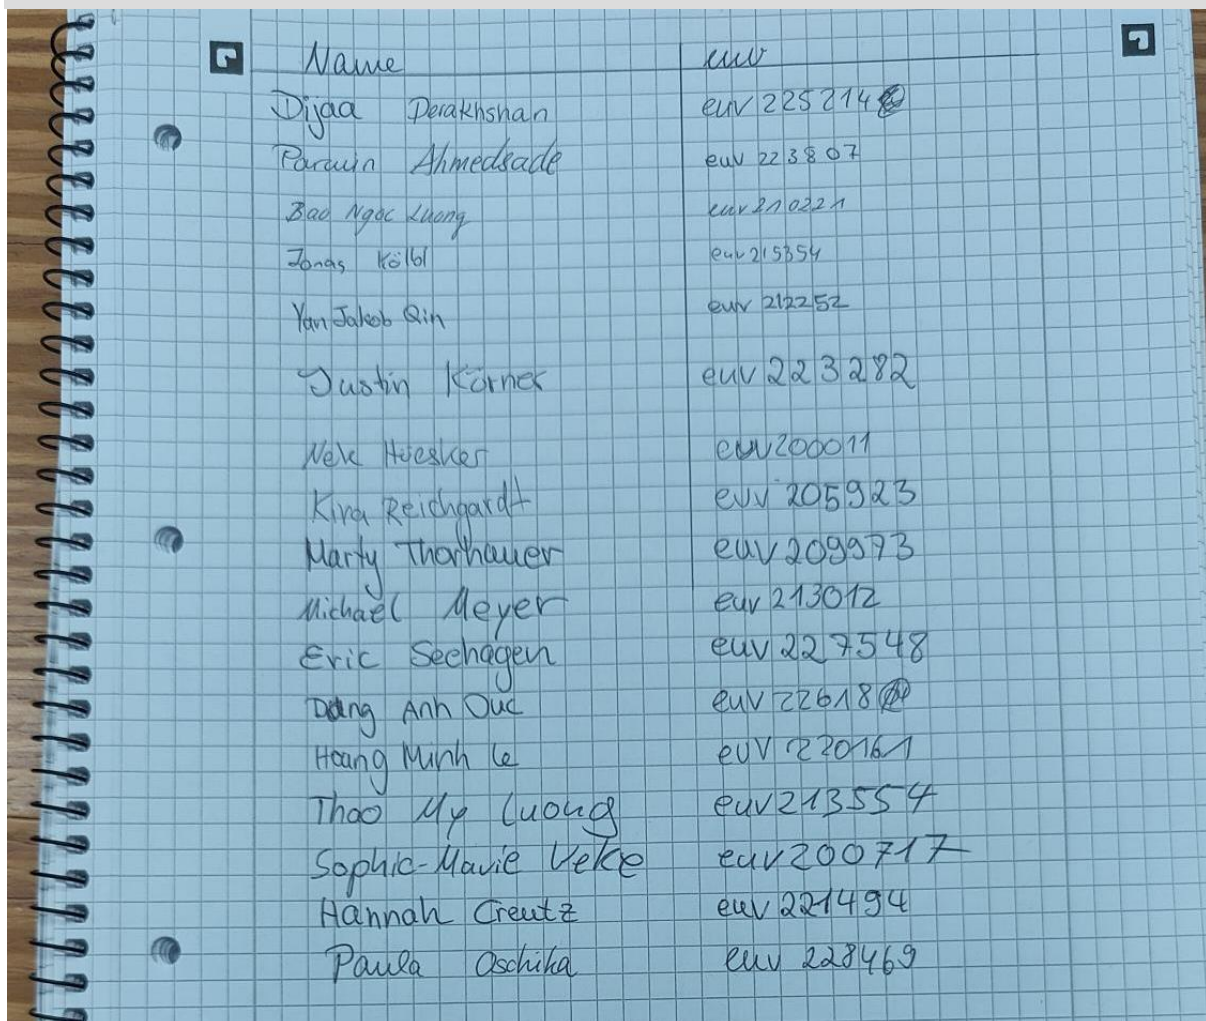 Name euv
Dijaa Derakhshan euv 225214
Parwin Ahmedsade euv 223807
Bao Ngoc Luong euv 210221
Jonas Kölbl euv 215354
Yan Jakob Qin euv 212252
Justin Körner euv 223282
Nele Hüesker euv200011
Kira Reichgardt euv 205923
Marty Thorhauer euv 209973
Michael Meyer euv 213012
Eric Seehagen euv 227548
Dang Anh Duc euv 22618
Hoang Minh Le euv 220161
Thao My Luong euv213554
Sophie-Marie Veke euv200717
Hannah Creutz euv 221494
Paula Oschika euv 228469